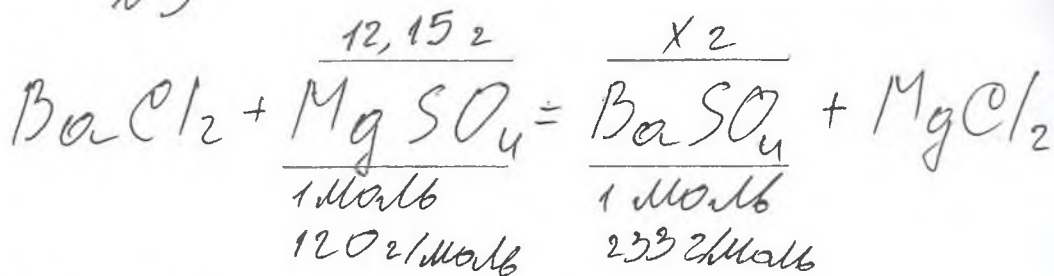 12,15 г X г
BaCl₂ + MgSO₄ = BaSO₄ + MgCl₂
1 моль 1 моль
120 г/моль 233 г/моль